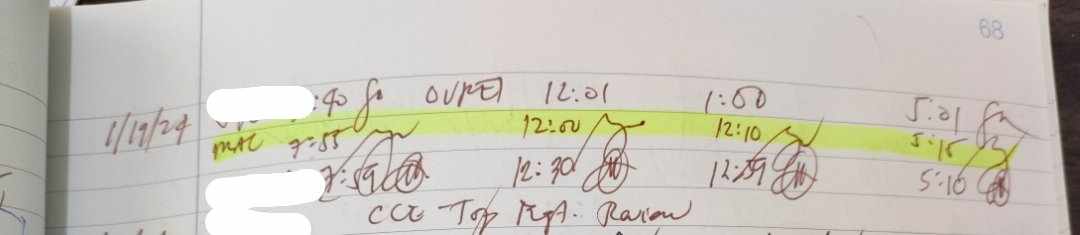 68
1/19/24 :40 12:01 1:00 5:01
7:55 12:00 12:10 5:15
7:59 12:30 12:59 5:10
CCE Top Mgt. Review